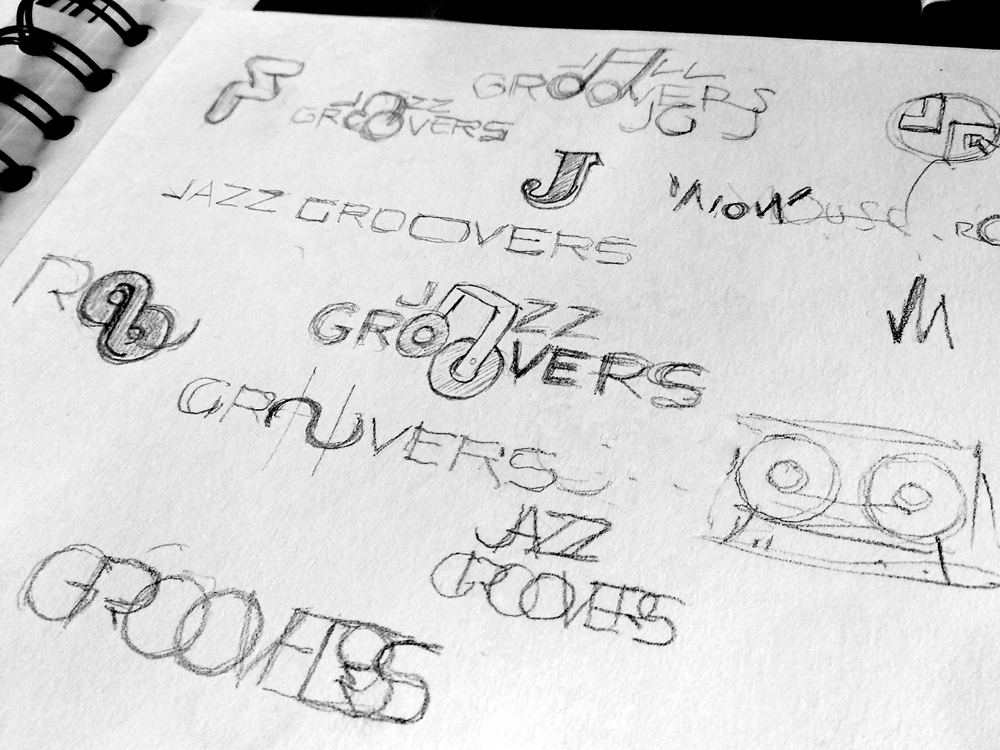 JAZZ
GROOVERS
GROOVERS
JG J
J
JAZZ GROOVERS
JAZZ
GROOVERS
GROOVERS
JAZZ
GROOVERS
GROOVERS